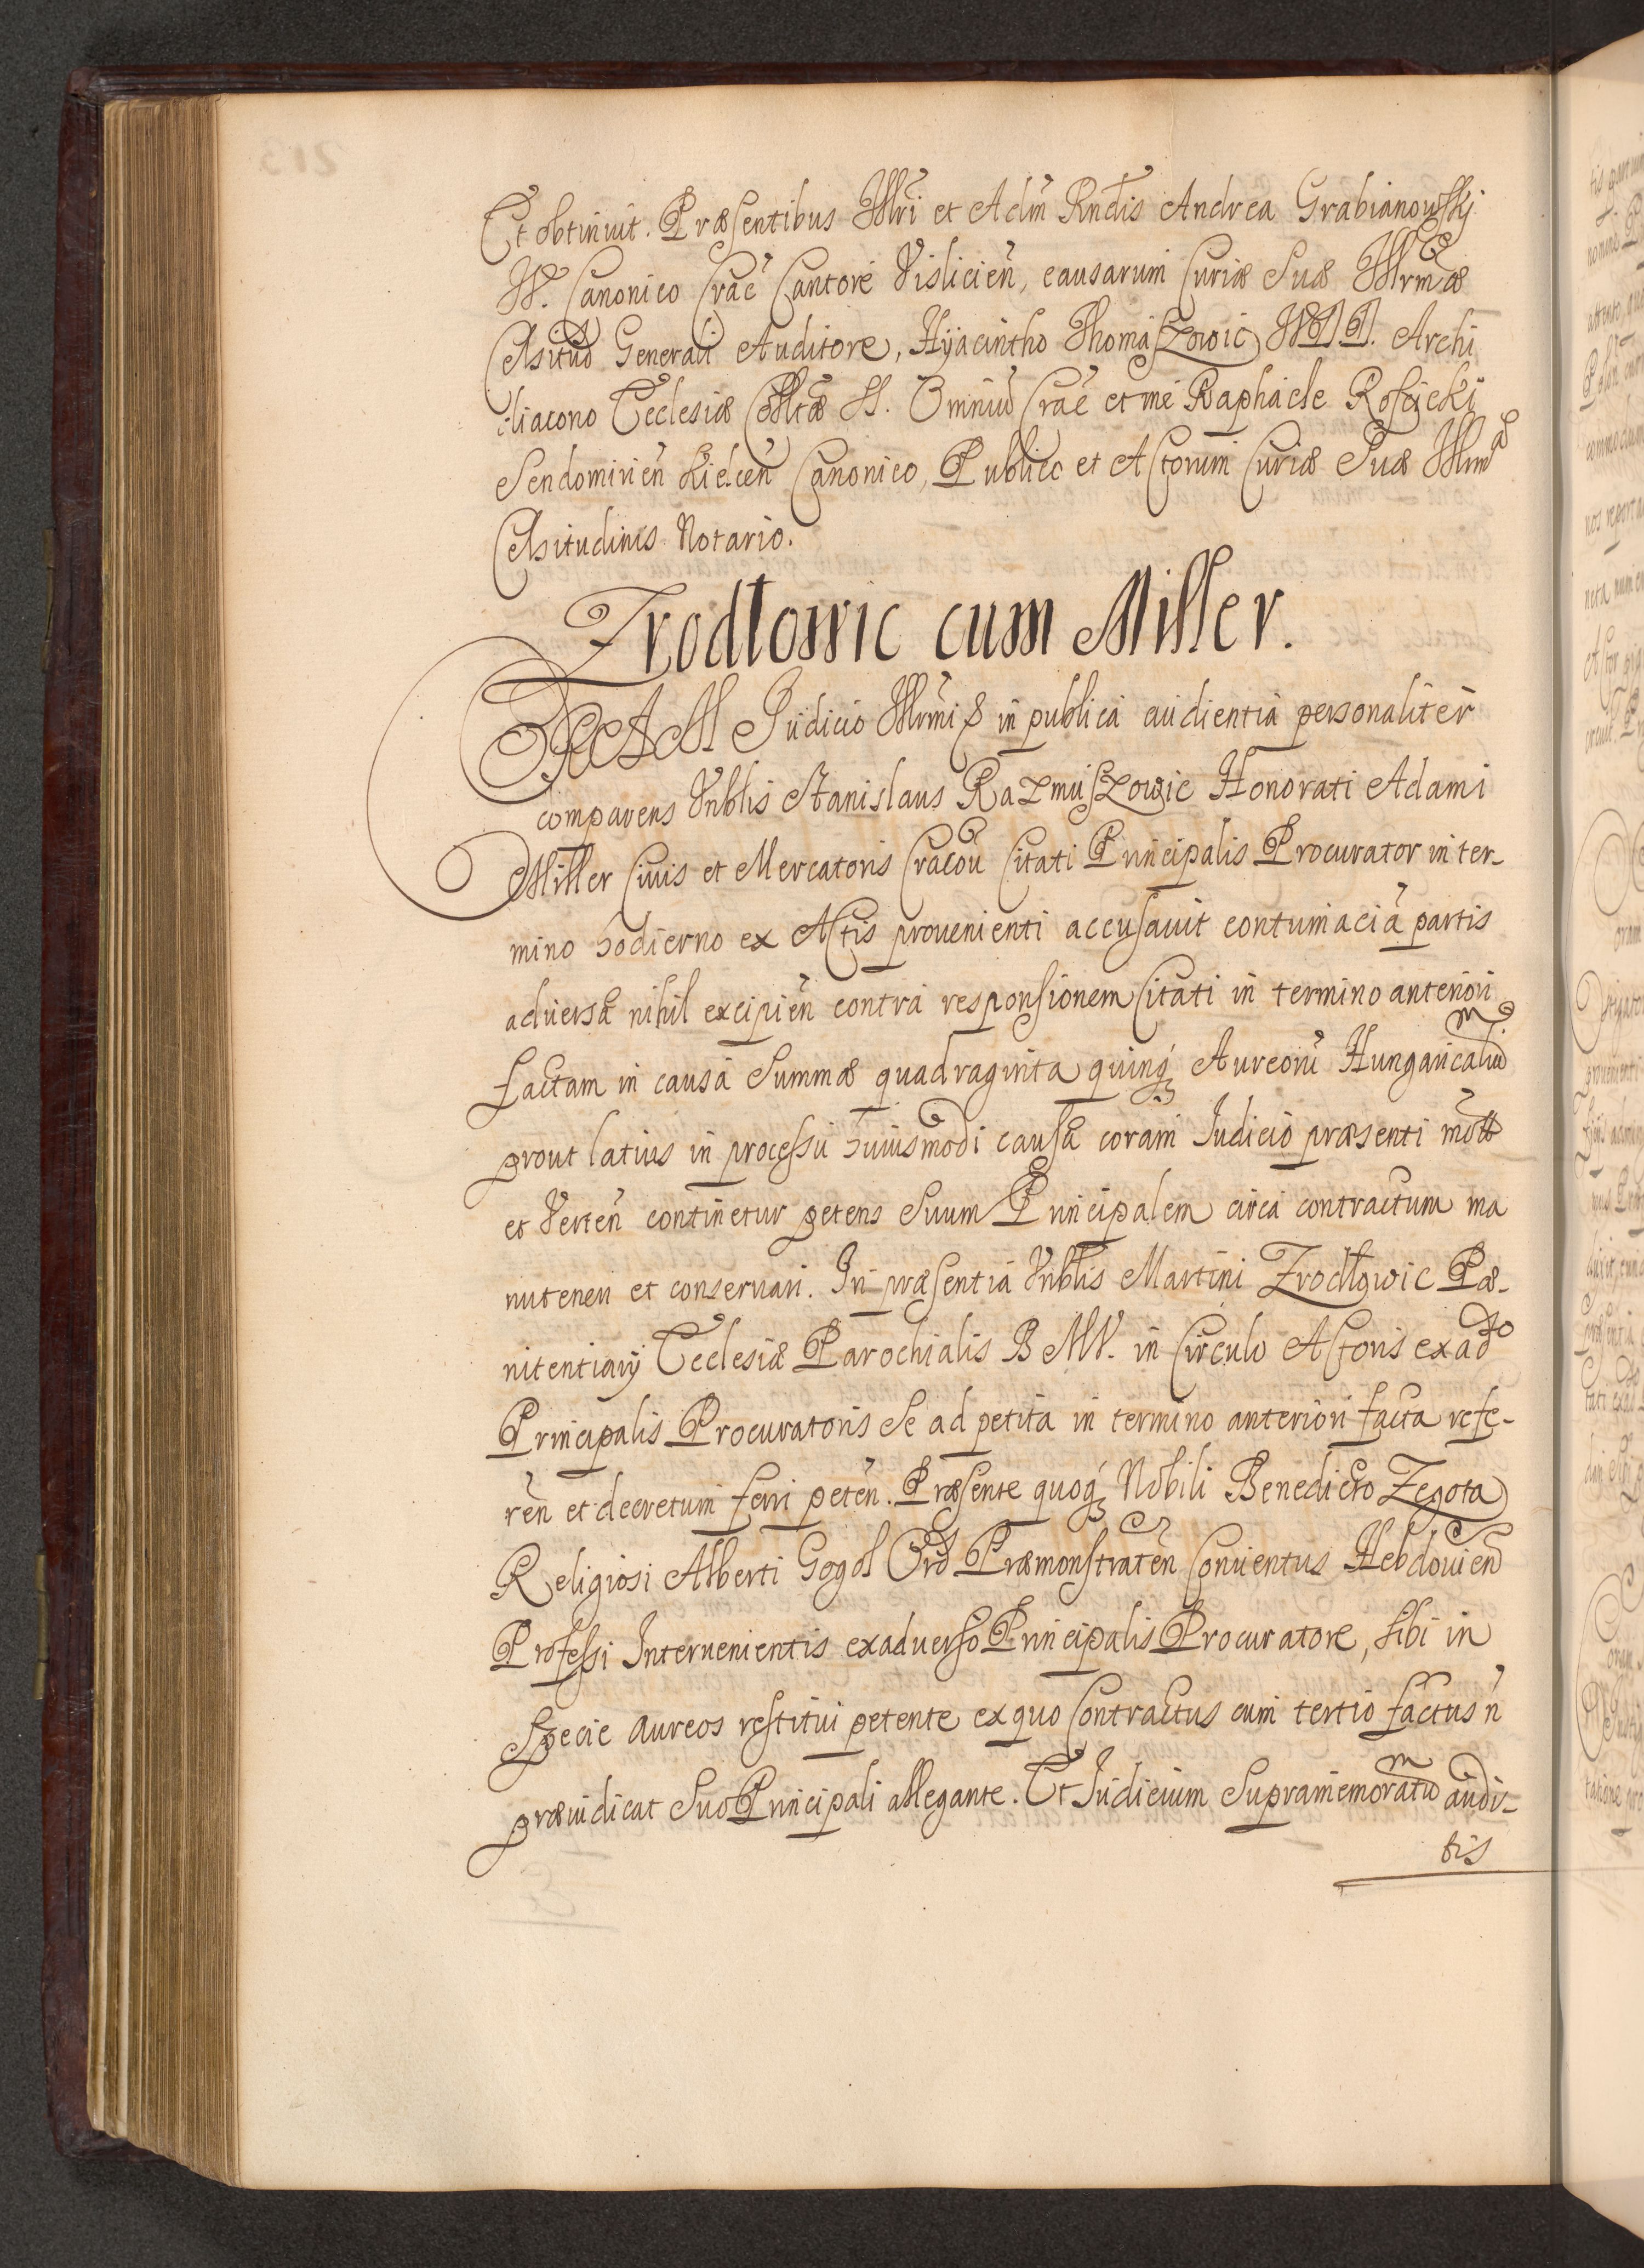 Et obtinuit. Præsentibus Illri et Adm Rndis Andrea Grabianowskj
W. Canonico Crac Cantore Vislicien, causarum Curiæ Suæ Illrmæ
Celsitud Generali Auditore, Hyacintho Thomaszowic Archi
diacono Ecclesiæ SS. Omniu Crac et me Raphaele Roscicki
Sendomirien Kielcen Canonico, Publico et Actorum Curiæ Suæ Illmæ
Celsitudinis Notario.
Zrodłowic cum Miller.
CORAM Judicio Illrmi & in publica audientia personaliter
comparens Vnblis Stanislaus Razmuszowic Honorati Adami
Miller Civis et Mercatoris Cracou Citati Principalis Procurator in ter-
mino hodierno ex Actis provenienti accusauit contumacia partis
aduersæ nihil excipien contra responsionem Citati in termino anteriori
factam in causa Summæ quadraginta quinq Aureoru Hungaricaliu
prout latius in processu huiusmodi causæ coram Iudicio præsenti mott
et Verten continetur petens Suum Principalem circa contractum ma
nuteneri et conseruari. In præsentia Vnblis Martini Zrodłowic Pæ-
nitentiarij Ecclesiæ Parochialis B M V. in Circulo Actoris exado
Principalis Procuratoris Se ad petita in termino anteriori facta refe-
ren et decretum ferri peten. Præsente quoq Nobili Benedicto Zegota
Religiosi Alberti Gogol Ord Præmonstraten Conuentus Hebdouien
Professi Interuenientis exaduerso Principalis Procuratore, Sibi in
Specie aureos restitui petente ex quo Contractus cum tertio factus n
præiudicat Suo Principali allegante. Et Iudicium Supramemoratu audi-
tis